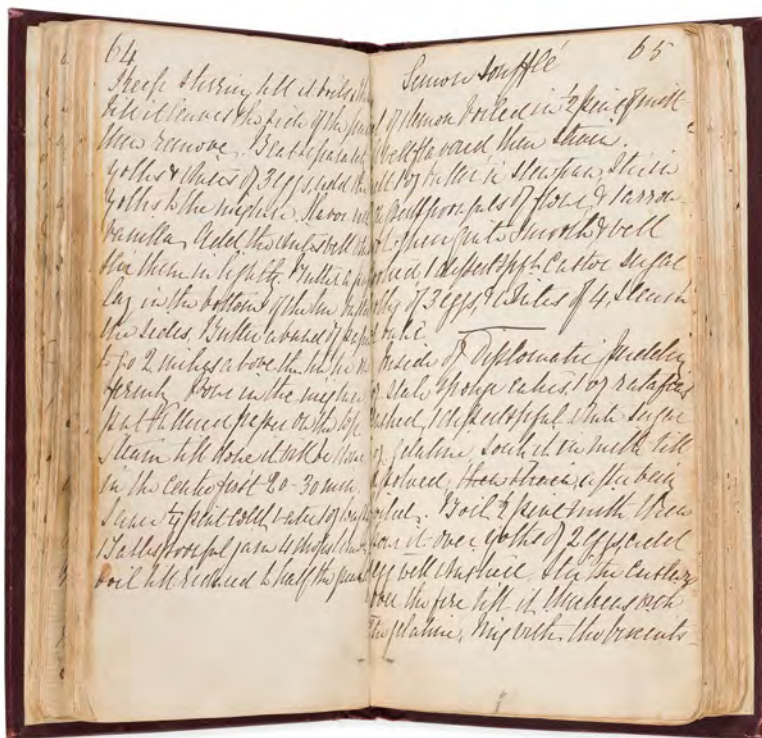 64
Keep stirring till it boils &
till it leaves the side of the pan
then remove. Beat separately
yolks & whites of 3 eggs, add the
yolks to the mixture. Flavor with
vanilla. Add the whites well
stir them in lightly. Butter a
lay in the bottom of the tin
the sides. Butter a band of paper
to go 2 inches above the tin
firmly. Pour in the mixture
put buttered paper on the top
steam till done it will be
in the centre first 20-30 min.
Sauce ½ pint cold water
1 Tablespoonful jam
boil till reduced to half the
65
Lemon Soufflé
of 1 lemon boiled in ½ pint of milk
well flavoured then strain.
1 oz butter in stewpan, stir in
dessertspoonfuls of flour &
when quite smooth & well
1 dessertspfl. castor sugar
of 3 eggs, & whites of 4, steam
or bake
Inside of Diplomatic Pudding
stale sponge cakes, 1 oz ratafias
1 dessertspoonful white sugar
gelatine, soak it in milk till
dissolved, then strain after being
Boil ½ pint milk then
pour it over yolks of 2 eggs, add
well stir the custard
over the fire till it thickens
the gelatine, mix with the biscuits